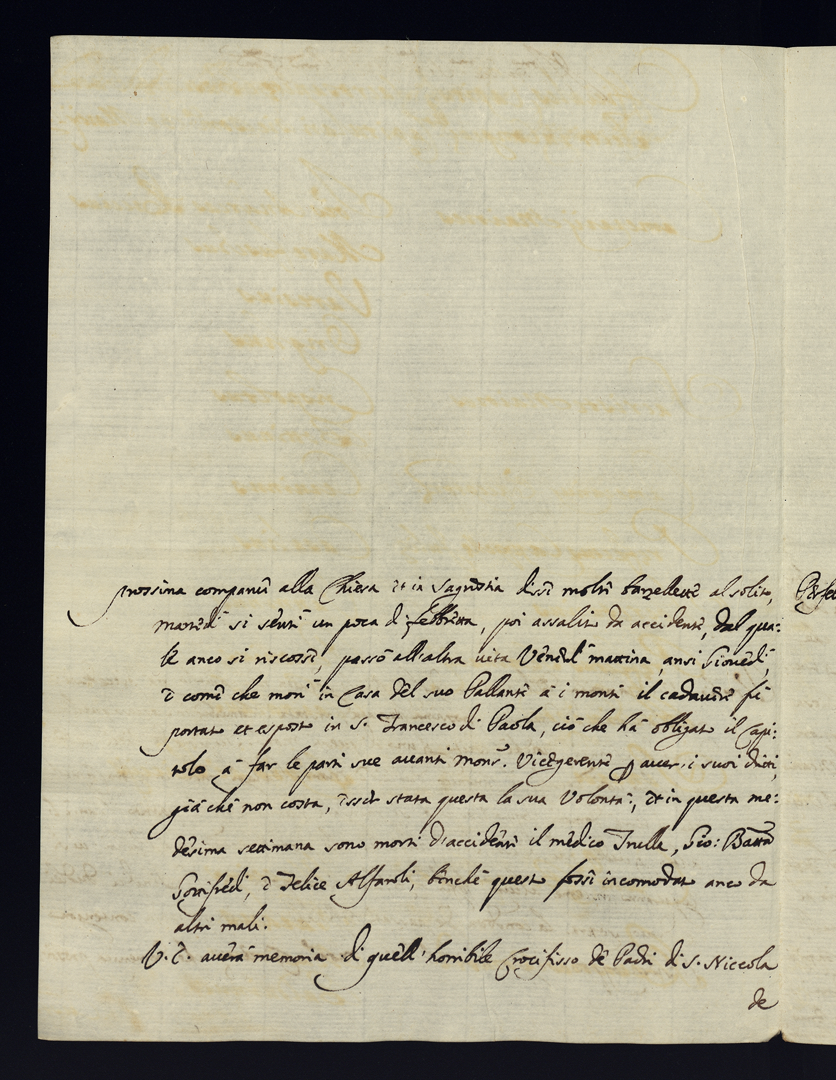 prossima comparve alla Chiesa et in Sagrestia disse molte barzellette al solito,
martedì si sentì un poca di febbretta, poi assalito da accidente, dal qua:
le anco si riscosse, passò all'altra vita Venerdì mattina, ansi Giovedì,
è come che morì in Casa del suo Pallanti à i monti il cadavere fù
portato et esposto in S. Francesco di Paola, ciò che hà obligato il Capi:
tolo à far le parti sue avanti Mons.r Vicegerente p aver i suoi dritti,
già che non costa, esser stata questa la sua Volontà:, et in questa me:
desima settimana sono morti d'accidenti il medico Trulle, Gio: Batta
Gottifredi, e Felice Alfaroli, benche questo fosse incomodato anco da
altri mali.
V. E. averà memoria di quell'horribile Crocifisso de Padri di S. Niccola
de